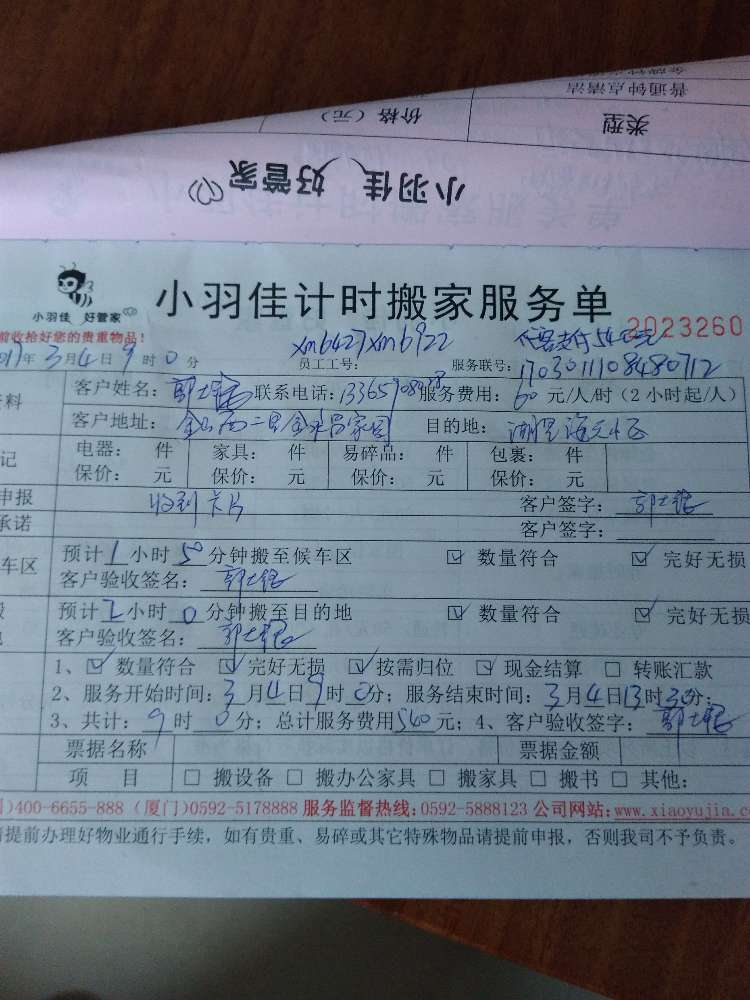 金牌钟点清洁
普通钟点清洁
类型 价格（元）
小羽佳 好管家
小羽佳 好管家
小羽佳计时搬家服务单
前收拾好您的贵重物品！
2023260
年3月4日9时0分 员工工号：xm6427xm6922 服务联号：1703011108480712
资料 客户姓名： 联系电话： 服务费用：60元/人/时（2小时起/人）
客户地址： 目的地：
记 电器： 件 家具： 件 易碎品： 件 包裹： 件
保价： 元 保价： 元 保价： 元 保价： 元
申报 收到卡片 客户签字：
承诺 客户签字：
车区 预计1小时50分钟搬至候车区 ☑数量符合 ☑完好无损
客户验收签名：
预计2小时0分钟搬至目的地 ☑数量符合 ☑完好无损
客户验收签名：
1、☑数量符合 ☑完好无损 ☑按需归位 ☑现金结算 □转账汇款
2、服务开始时间：3月4日9时0分；服务结束时间：3月4日13时30分；
3、共计：9时0分；总计服务费用540元；4、客户验收签字：
票据名称 票据金额
项 目 □搬设备 □搬办公家具 □搬家具 □搬书 □其他：
)400-6655-888 (厦门)0592-5178888 服务监督热线：0592-5888123 公司网站：www.xiaoyujia.co
请提前办理好物业通行手续，如有贵重、易碎或其它特殊物品请提前申报，否则我司不予负责。